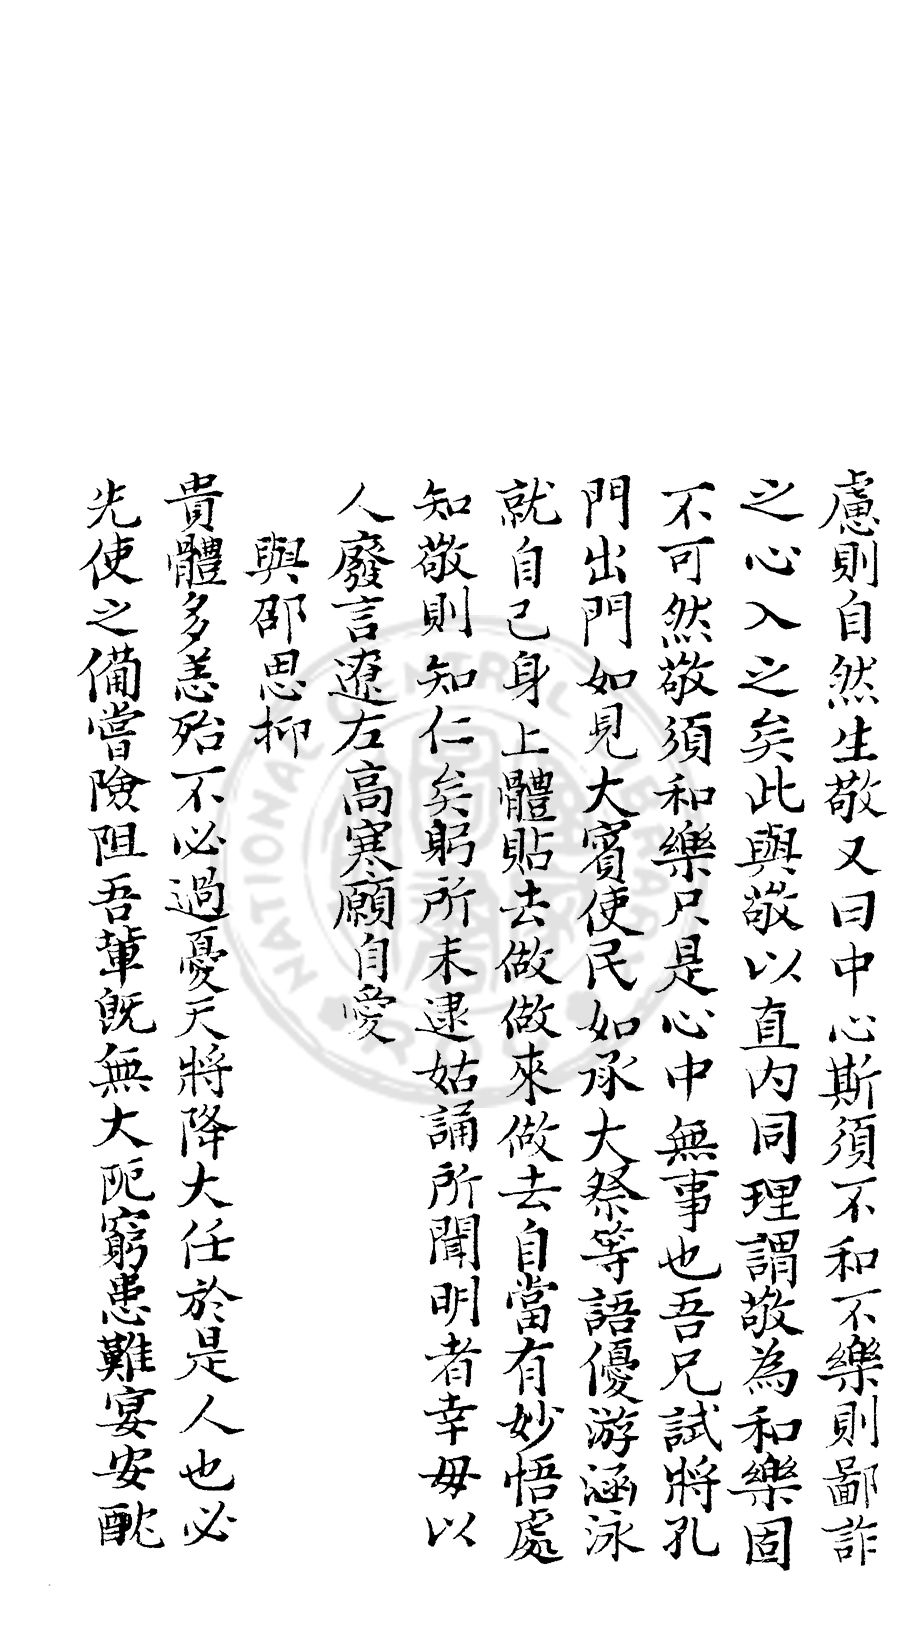 慮則自然生敬又曰中心斯須不和不樂則鄙詐
之心入之矣此與敬以直內同理謂敬為和樂固
不可然敬須和樂只是心中無事也吾兄試將孔
門出門如見大賓使民如承大祭等語優游涵泳
就自己身上體貼去做做來做去自當有妙悟處
知敬則知仁矣躬所未逮姑誦所聞明者幸毋以
人廢言遼左高寒願自愛
與邵思抑
貴體多恙殆不必過憂天將降大任於是人也必
先使之備嘗險阻吾輩既無大阨窮患難宴安酖
NATIONAL CENTRAL LIBRARY
R.O.C